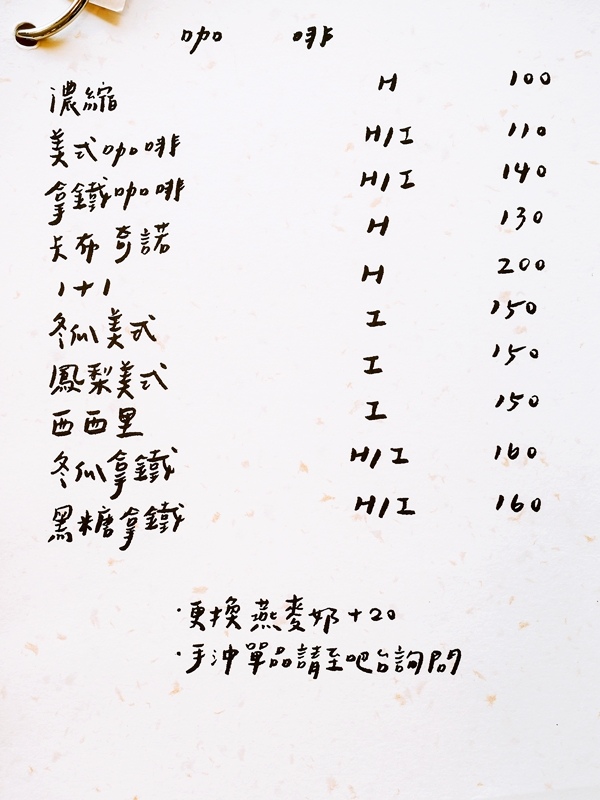 咖啡
濃縮 H 100
美式咖啡 H/I 110
拿鐵咖啡 H/I 140
卡布奇諾 H 130
1+1 H 200
冬瓜美式 I 150
鳳梨美式 I 150
西西里 I 150
冬瓜拿鐵 H/I 160
黑糖拿鐵 H/I 160
·更換燕麥奶+20
·手沖單品請至吧台詢問